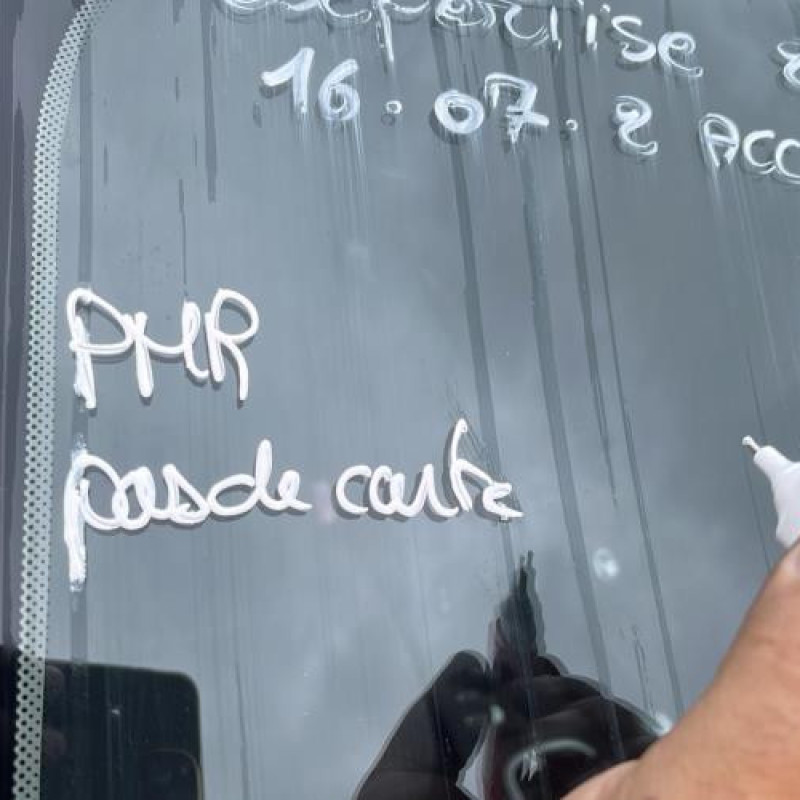 expertise
16.07.2 ACC
PMR
pas de carte